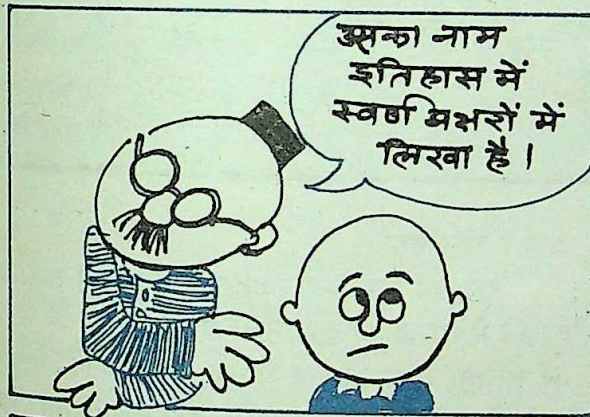 उसका नाम
इतिहास में
स्वर्ण अक्षरों में
लिखा है।